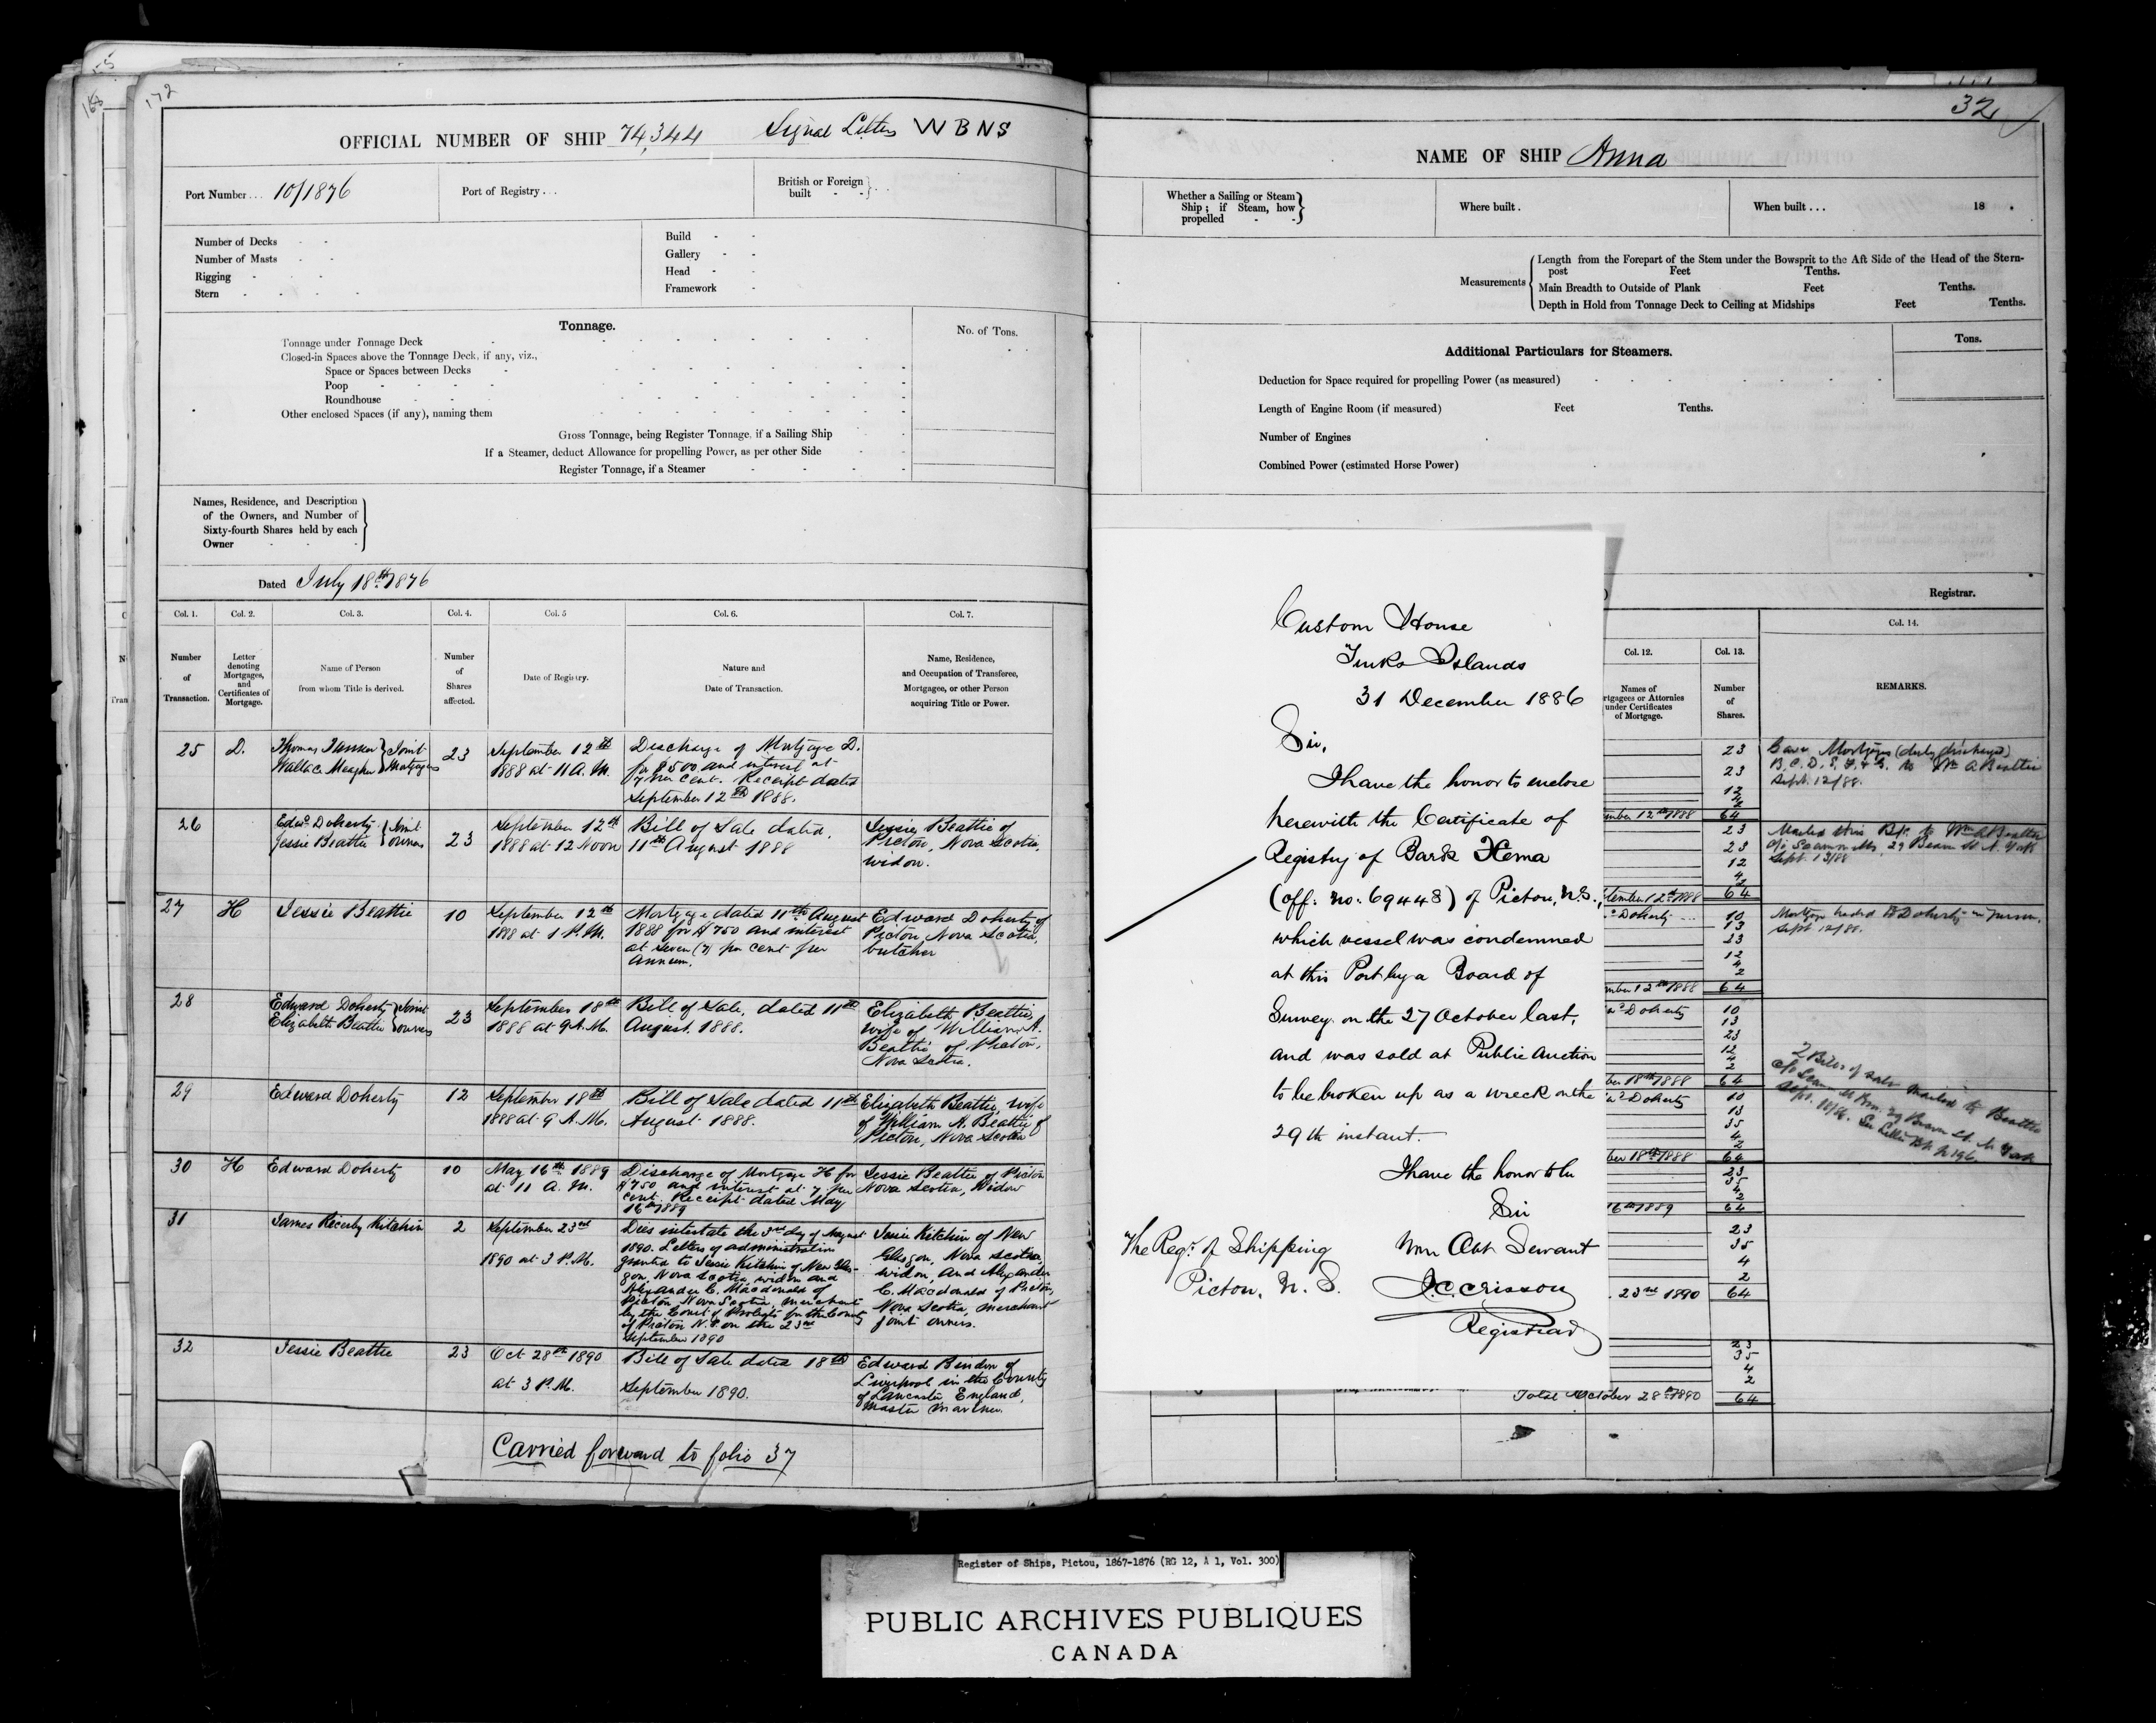 172
OFFICIAL NUMBER OF SHIP 74,344 Signal Letters W B N S
Port Number... 10/1876
Port of Registry...
British or Foreign
built
Number of Decks
Number of Masts
Rigging
Stern
Build
Gallery
Head
Framework
Tonnage.
No. of Tons.
Tonnage under Tonnage Deck
Closed-in Spaces above the Tonnage Deck, if any, viz.,
Space or Spaces between Decks
Poop
Roundhouse
Other enclosed Spaces (if any), naming them
Gross Tonnage, being Register Tonnage, if a Sailing Ship
If a Steamer, deduct Allowance for propelling Power, as per other Side
Register Tonnage, if a Steamer
Names, Residence, and Description
of the Owners, and Number of
Sixty-fourth Shares held by each
Owner
Dated July 18th 1876
Col. 1. Col. 2. Col. 3. Col. 4. Col. 5 Col. 6. Col. 7.
Number
of
Transaction.
Letter
denoting
Mortgages,
and
Certificates of
Mortgage.
Name of Person
from whom Title is derived.
Number
of
Shares
affected.
Date of Registry.
Nature and
Date of Transaction.
Name, Residence,
and Occupation of Transferee,
Mortgagee, or other Person
acquiring Title or Power.
25
D.
Thomas Tanner
Wallace Meagher
Joint
Mortgagees
23
September 12th
1888 at 11 A.M.
Discharge of Mortgage D.
for $500 and interest at
7 per cent. Receipt dated
September 12th 1888.
26
Edwd. Doherty
Jessie Beattie
Joint
owners
23
September 12th
1888 at 12 Noon
Bill of Sale dated
11th August 1888
Jessie Beattie of
Pictou, Nova Scotia,
widow.
27
H
Jessie Beattie
10
September 12th
1888 at 1 P.M.
Mortgage dated 11th August
1888 for $750 and interest
at seven (7) per cent per
annum.
Edward Doherty of
Pictou Nova Scotia,
butcher
28
Edward Doherty
Elizabeth Beattie
Joint
owners
23
September 18th
1888 at 9 A.M.
Bill of Sale, dated 11th
August. 1888.
Elizabeth Beattie,
wife of William A.
Beattie of Pictou,
Nova Scotia.
29
Edward Doherty
12
September 18th
1888 at 9 A.M.
Bill of Sale dated 11th
August 1888.
Elizabeth Beattie, wife
of William A. Beattie of
Pictou, Nova Scotia
30
H
Edward Doherty
10
May 16th 1889
at 11 A.M.
Discharge of Mortgage H for
$750 and interest at 7 per
cent. Receipt dated May
16th 1889
Jessie Beattie of Pictou
Nova Scotia, Widow
31
James Kitchin
2
September 23rd
1890 at 3 P.M.
Dies intestate the 3rd day of August
1890. Letters of administration
granted to Jessie Kitchin of New Glas-
gow, Nova Scotia, widow and
Alexander C. Macdonald of
Pictou Nova Scotia, merchant
by the Court of Probate for the County
of Pictou N.S. on the 23rd
September 1890
Jessie Kitchin of New
Glasgow, Nova Scotia,
widow, and Alexander
C. Macdonald of Pictou,
Nova Scotia, merchant
joint owners.
32
Jessie Beattie
23
Oct 28th 1890
at 3 P.M.
Bill of Sale dated 18th
September 1890.
Edward Bindon of
Liverpool in the County
of Lancaster England,
Master Mariner.
Carried forward to folio 37
32
NAME OF SHIP Anna
Whether a Sailing or Steam
Ship; if Steam, how
propelled
Where built.
When built... 18
Measurements
Length from the Forepart of the Stem under the Bowsprit to the Aft Side of the Head of the Stern-
post Feet Tenths.
Main Breadth to Outside of Plank Feet Tenths.
Depth in Hold from Tonnage Deck to Ceiling at Midships Feet Tenths.
Additional Particulars for Steamers.
Tons.
Deduction for Space required for propelling Power (as measured)
Length of Engine Room (if measured) Feet Tenths.
Number of Engines
Combined Power (estimated Horse Power)
Registrar.
Custom House
Turks Islands
31 December 1886
Sir,
I have the honor to enclose
herewith the Certificate of
Registry of Bark Xema
(off. no. 69448) of Pictou, N.S.,
which vessel was condemned
at this Port by a Board of
Survey on the 27 October last,
and was sold at Public Auction
to be broken up as a wreck on the
29th instant.
I have the honor to be
Sir
Your Obt Servant
J.C. Crisson
Registrar
The Regr. of Shipping
Pictou, N.S.
Col. 12. Col. 13. Col. 14.
Names of
rtgagees or Attornies
under Certificates
of Mortgage.
Number
of
Shares.
REMARKS.
23
23
12
4
2
mber 12th 1888 64
Gave Mortgages (duly discharged)
B.C.D.E.F.&G. to Wm A Beattie
Sept. 12/88.
23
23
12
4
2
tember 12th 1888 64
Mailed this B/S to Wm A Beattie
29 Beaver St N. York
Sept. 13/88
Doherty 10
13
23
12
4
2
mber 12th 1888 64
Mortgage handed E Doherty in person.
Sept 12/88.
Doherty 10
13
23
12
4
2
ber 18th 1888 64
2 Bills of sale mailed to Beattie
29 Beaver St. N. York
Sept. 18/88. See Letter Bk p 196.
Doherty 10
13
35
4
2
ber 18th 1888 64
23
35
4
2
16th 1889 64
23
35
4
2
23rd 1890 64
23
35
4
2
Total October 28th 1890 64
Register of Ships, Pictou, 1867-1876 (RG 12, A 1, Vol. 300)
PUBLIC ARCHIVES PUBLIQUES
CANADA